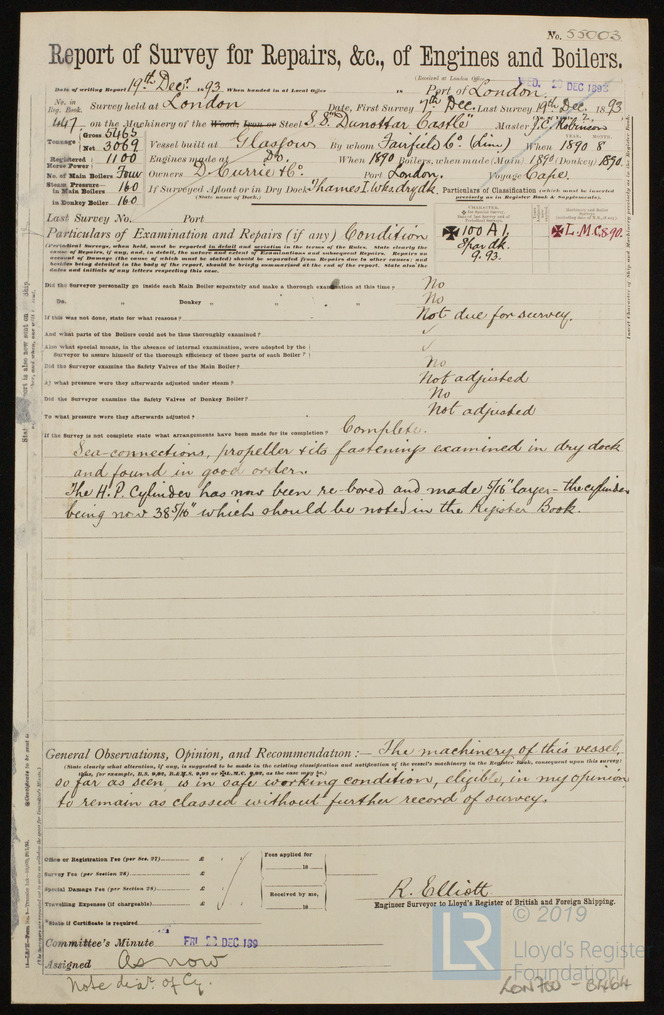 No. 55003
Report of Survey for Repairs, &c., of Engines and Boilers.
(Received at London Office
Date of writing Report 19th Decr. 1893 When handed in at Local Office 18 Port of London.
No. in Reg. Book. Survey held at London Date, First Survey 7th Dec. Last Survey 19th Dec. 1893
on the Machinery of the Wood, Iron or Steel S.S. "Dunottar Castle" Master
Tonnage Gross 5465
Net 3069
Vessel built at Glasgow By whom Fairfield Co. (Lim) When 1890 8
Registered Horse Power 1100 Engines made at Do. When 1890 Boilers, when made (Main) 1890 (Donkey) 1890
No. of Main Boilers Four Owners D. Currie & Co. Port London. Voyage Cape.
Steam Pressure in Main Boilers 160 If Surveyed Afloat or in Dry Dock Thames I. Wks. dry dk.
(State name of Dock.)
in Donkey Boiler 160
Particulars of Classification (which must be inserted precisely as in Register Book & Supplements).
Last Survey No. Port
Particulars of Examination and Repairs (if any) Condition
100 A1.
Spar dk.
9.93.
L.M.C. 8.90
(Periodical Surveys, when held, must be reported in detail and seriatim in the terms of the Rules. State clearly the
cause of Repairs, if any, and, in detail, the nature and extent of Examinations and subsequent Repairs. Repairs on
account of Damage (the cause of which must be stated) should be separated from Repairs due to other causes; and
besides being detailed in the body of the report, should be briefly summarised at the end of the report. State also the
dates and initials of any letters respecting this case.
Did the Surveyor personally go inside each Main Boiler separately and make a thorough examination at this time? No
Do. " Donkey " " " " No
If this was not done, state for what reasons? Not due for survey.
And what parts of the Boilers could not be thus thoroughly examined? ✓
Also what special means, in the absence of internal examination, were adopted by the
Surveyor to assure himself of the thorough efficiency of those parts of each Boiler? ✓
Did the Surveyor examine the Safety Valves of the Main Boiler? No
At what pressure were they afterwards adjusted under steam? Not adjusted
Did the Surveyor examine the Safety Valves of Donkey Boiler? No
To what pressure were they afterwards adjusted? Not adjusted
If the Survey is not complete state what arrangements have been made for its completion? Complete.
Sea-connections, propeller & its fastenings examined in dry dock
and found in good order.
The H.P. Cylinder has now been re-bored and made 5/16" larger - the cylinder
being now 38 5/16" which should be noted in the Register Book.
General Observations, Opinion, and Recommendation:— The machinery of this vessel,
(State clearly what alteration, if any, is suggested to be made in the existing classification and notification of the vessel's machinery in the Register Book, consequent upon this survey)
so far as seen is in safe working condition, eligible, in my opinion,
to remain as classed without further record of survey.
Office or Registration Fee (per Sec. 27) £
Survey Fee (per Section 28) £
Special Damage Fee (per Section 28) £
Travelling Expenses (if chargeable) £
Fees applied for
18
Received by me,
18
R. Elliott
Engineer Surveyor to Lloyd's Register of British and Foreign Shipping.
*State if Certificate is required
Committee's Minute FRI 22 DEC 189
Assigned As now
Note diar. of Cy.
LR
© 2019
Lloyd's Register
Foundation